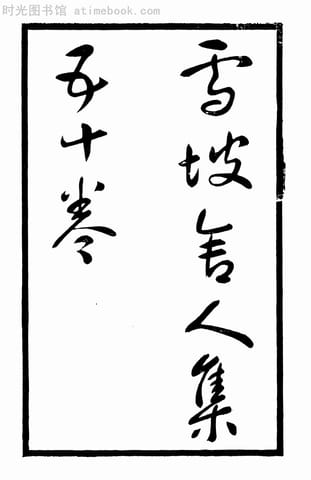 时光图书馆 atimebook.com
雪坡舍人集
五十卷